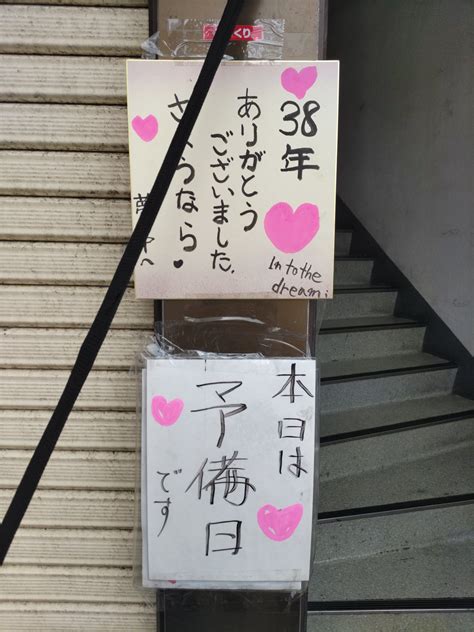 くり
38年
ありがとう
ございました.
さようなら♥
In to the
dream;
本日は
予備日
です